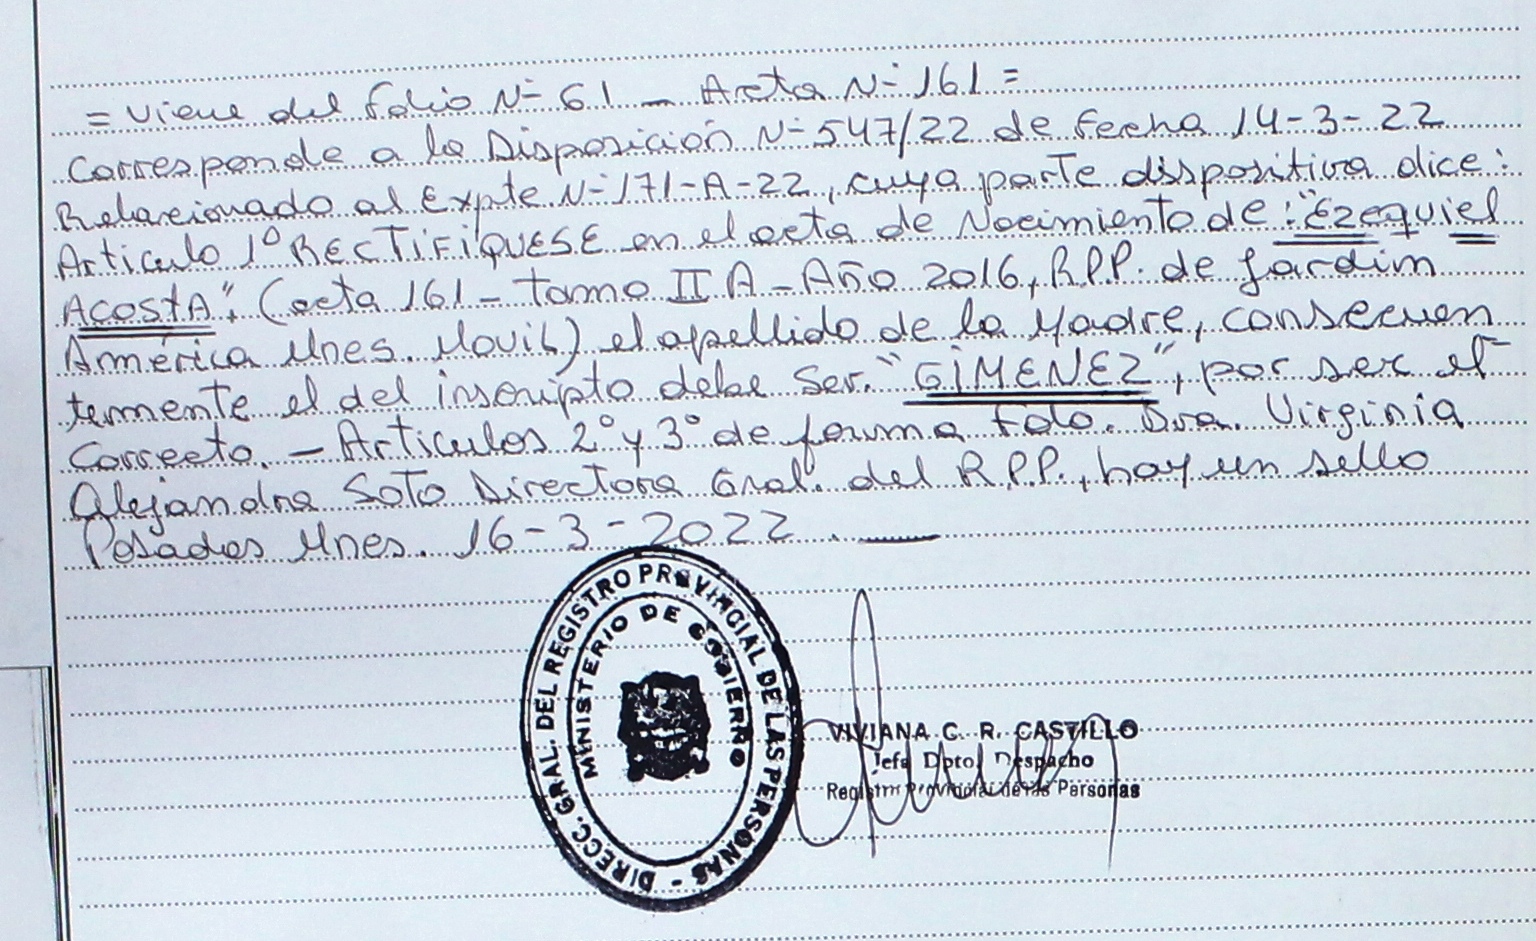 = Viene del folio N- 61 - Acta N- 161 =
Corresponde a la Disposición N- 547/22 de fecha 14-3-22
Relacionado al Expte N- 171-A-22, cuya parte dispositiva dice:
Articulo 1º RECTIFIQUESE en el acta de Nacimiento de: "Ezequiel
ACOSTA", (acta 161 - tomo II A - Año 2016, R.P.P. de Jardim
América Mnes. Movil) el apellido de la Madre, consecuen
temente el del inscripto debe ser. "GIMENEZ", por ser el
Correcto. - Articulos 2º y 3º de forma Fdo. Dra. Virginia
Alejandra SOTO Directora Gral. del R.P.P., hay un sello
Posadas Mnes. 16-3-2022.
DIRECC. GRAL. DEL REGISTRO PROVINCIAL DE LAS PERSONAS -
MINISTERIO DE GOBIERNO
VIVIANA C. R. CASTILLO
Jefa Dpto. Despacho
Registro Provincial de las Personas